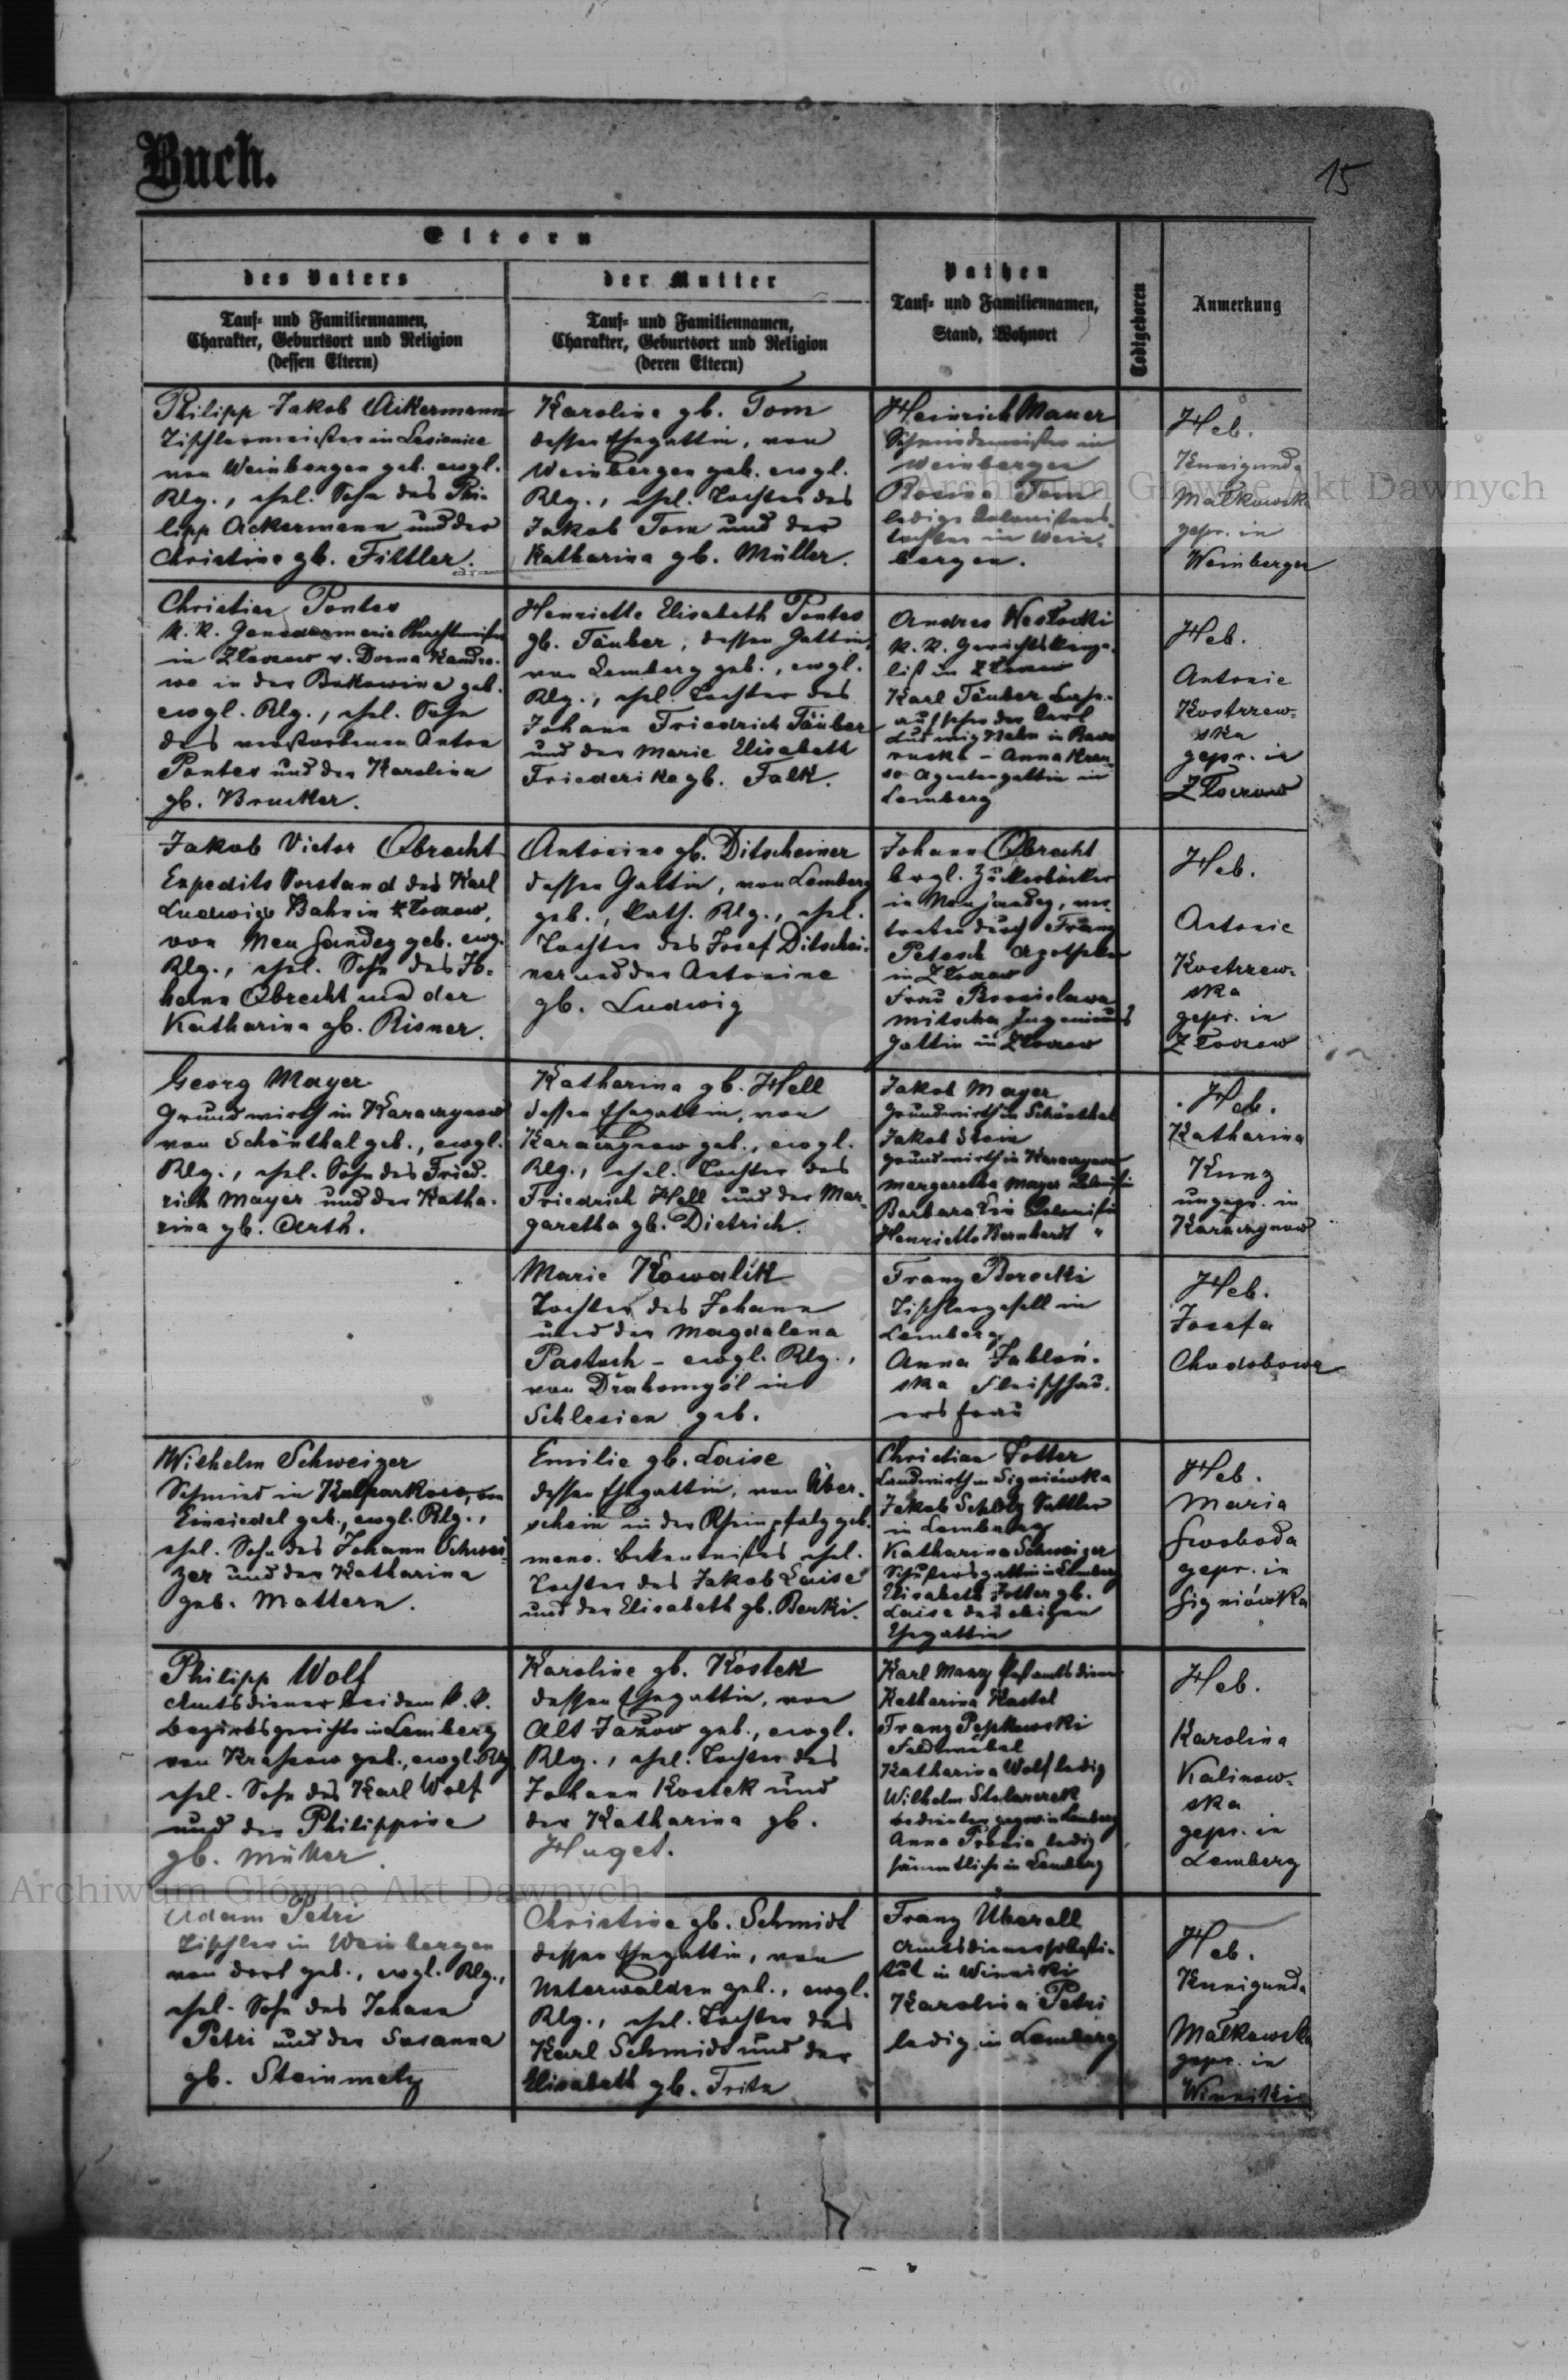 Buch.
15
Eltern
des Vaters
der Mutter
Pathen
Todtgeboren
Anmerkung
Tauf- und Familiennamen,
Charakter, Geburtsort und Religion
(dessen Eltern)
Tauf- und Familiennamen,
Charakter, Geburtsort und Religion
(deren Eltern)
Tauf- und Familiennamen,
Stand, Wohnort
Philipp Jakob Ackermann
Tischlermeister in Lesienice
von Weinbergen geb. evgl.
Rlg., ehel. Sohn des Phi-
lipp Ackermann und der
Christine gb. Fittler.
Karoline gb. Tom
dessen Ehegattin, von
Weinbergen geb. evgl.
Rlg., ehel. Tochter des
Jakob Tom und der
Katharina gb. Müller.
Heinrich Mauer
Schmiedemeister in
Weinbergen
Rosina Tom
ledige Kolonistens-
tochter in Wein-
bergen.
Heb.
Kunigunda
Małkowska
gepr. in
Weinbergen
Christian Pontes
k. k. Gensdarmerie Wachtmeister
in Złoczow v. Dorna Kandre-
we in der Bukowina geb.
evgl. Rlg., ehel. Sohn
des verstorbenen Anton
Pontes und der Karolina
gb. Brucker.
Henriette Elisabeth Pontes
gb. Täuber, dessen Gattin,
von Lemberg geb., evgl.
Rlg., ehel. Tochter des
Johann Friedrich Täuber
und der Marie Elisabeth
Friederike gb. Falk.
Andres Westocki
k. k. Gerichtskanze-
list in Złoczow
Karl Täuber
aufseher der Carl
Ludwig Bahn in Rawa
ruska - Anna
Agentengattin in
Lemberg
Heb.
Antonie
Kostrzew-
ska
gepr. in
Złoczow
Jakob Victor Obracht
Expedits Vorstand des Karl
Ludwigs Bahn in Złoczow,
von Neu Sandez geb. evg.
Rlg., ehel. Sohn des Jo-
hann Obracht und der
Katharina gb. Risner.
Antonine gb. Ditscheiner
dessen Gattin, von Lemberg
geb., kath. Rlg., ehel.
Tochter des Josef Ditschei-
ner und der Antonine
gb. Ludwig
Johann Obracht
brgl. Zückerbäcker
in Neusandez, ver-
treten durch Franz
Petesch Apotheker
in Złoczow
Frau Bronislawa
Mitscha Ingenieurs
Gattin in Złoczow
Heb.
Antonie
Kostrzew-
ska
gepr. in
Złoczow
Georg Mayer
Grundwirth in Karaczynow
von Schönthal geb., evgl.
Rlg., ehel. Sohn des Fried-
rich Mayer und der Katha-
rina gb. Arth.
Katharina gb. Hell
dessen Ehegattin, von
Karaczynow geb., evgl.
Rlg., ehel. Tochter des
Friedrich Hell und der Mar-
garetha gb. Dietrich.
Jakob Mayer
Grundwirth in Schönthal
Jakob Stein
Grundwirth in Karaczynow
Margaretha Mayer
Barbara
Henriette Bernhardt "
Heb.
Katharina
Kunz
ungepr. in
Karaczynow
Marie Kowalik
Tochter des Johann
und der Magdalena
Pastuch - evgl. Rlg.,
von Drahomyśl in
Schlesien geb.
Franz Borocki
Tischlergesell in
Lemberg
Anna Jabłoń-
ska Fleischhau-
ers frau
Heb.
Josefa
Chodobowa
Wilhelm Schweizer
Schmied in Kulparkow, von
Einsiedel geb., evgl. Rlg.,
ehel. Sohn des Johann Schwei-
zer und der Katharina
geb. Mattern.
Emilie gb. Laise
dessen Ehegattin, von Über-
schein in der Rheinpfalz geb.
meno. Bekentnisses ehel.
Tochter des Jakob Laise
und der Elisabeth gb. Berki.
Christian Jotter
Landwirth in Signiówka
Jakob Scholz Sattler
in Lemberg
Katharina Schweizer
Schusters gattin in Lemberg
Elisabeth Jotter gb.
Laise des obigen
Ehegattin
Heb.
Maria
Swoboda
gepr. in
Signiówka
Philipp Wolf
Amtsdiener bei dem k. k.
Bezirksgerichte in Lemberg
von geb., evgl. Rlg.
ehel. Sohn des Karl Wolf
und der Philippine
gb. Müller.
Karoline gb. Kostek
dessen Ehegattin, von
Alt Jażow geb., evgl.
Rlg., ehel. Tochter des
Johann Kostek und
der Katharina gb.
Huget.
Karl Manz
Katharina Kastel
Franz
Feldwebel
Katharina Wolf ledig
Wilhelm
in Lemberg
Anna ledig
sämmtliche in Lemberg
Heb.
Karolina
Kalinow-
ska
gepr. in
Lemberg
Adam Petri
Tischler in Weinbergen
von dort geb., evgl. Rlg.,
ehel. Sohn des Johann
Petri und der Susanna
gb. Steinmetz
Christine gb. Schmidt
dessen Ehegattin, von
Unterwalden geb., evgl.
Rlg., ehel. Tochter des
Karl Schmidt und der
Elisabeth gb. Fritz
Franz Überall
Amtsdienersubsti-
tut in Winniki
Karolina Petri
ledig in Lemberg
Heb.
Kunigunda
Małkowska
gepr. in
Winniki
Archiwum Główne Akt Dawnych
Archiwum Główne Akt Dawnych